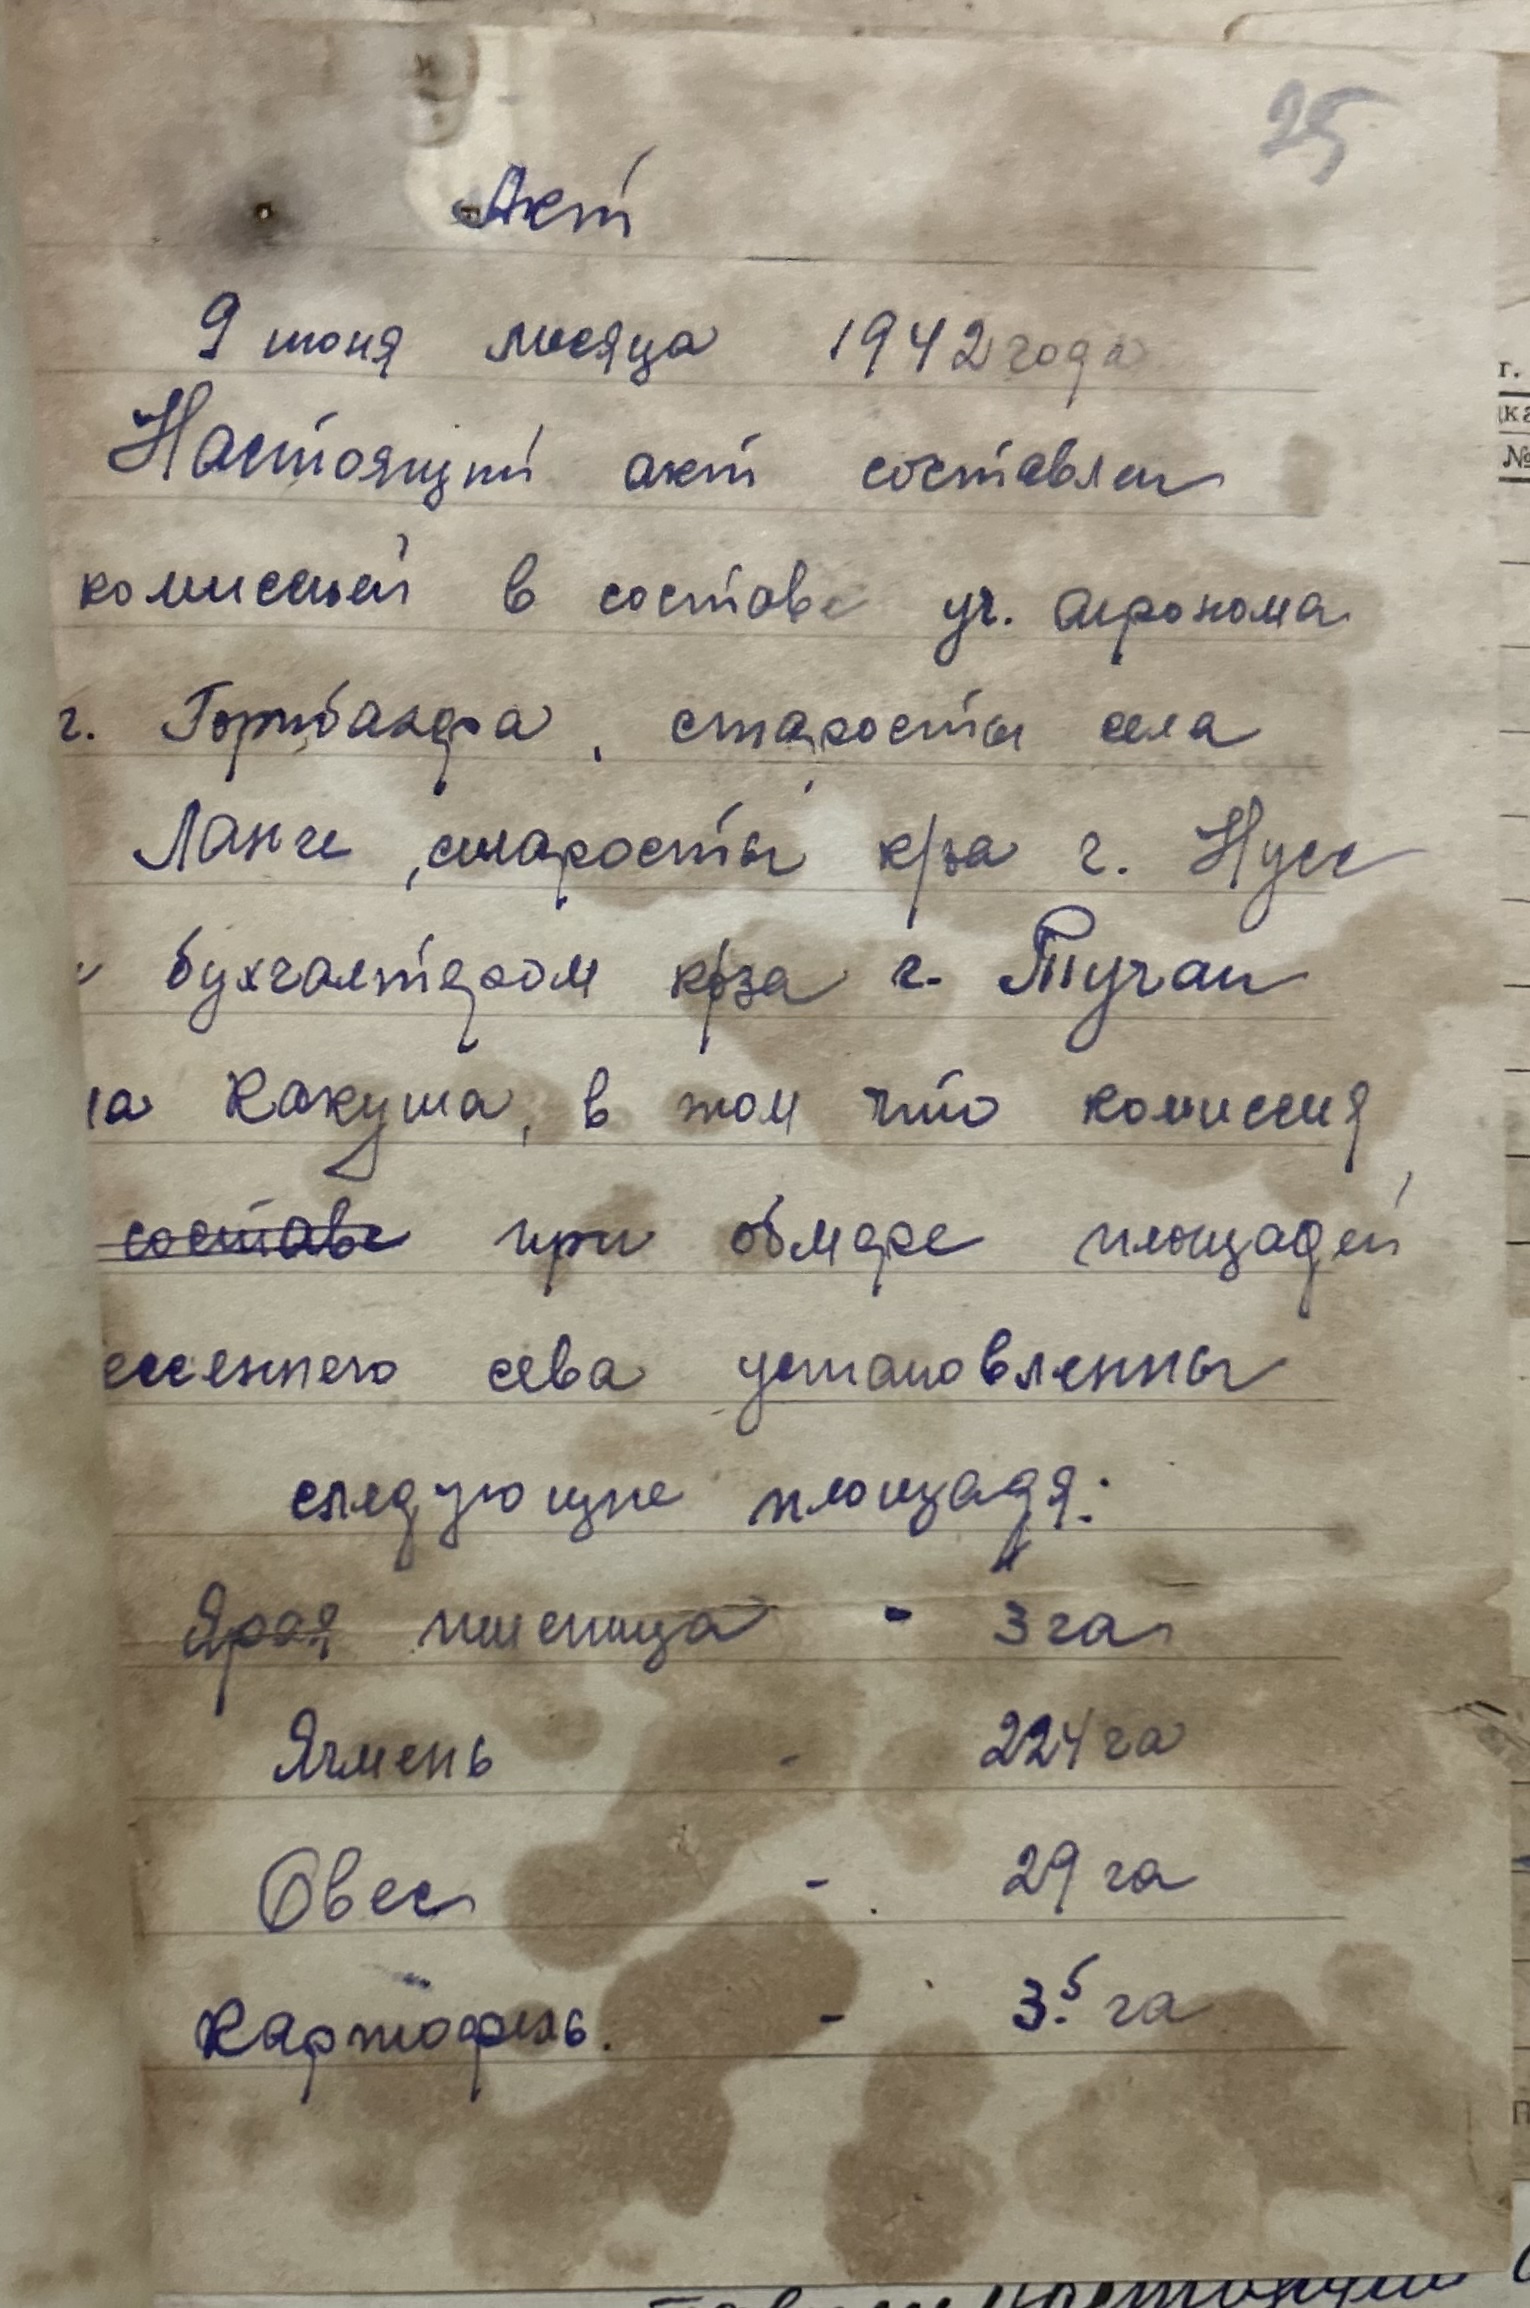 25
Акт
9 июня месяца 1942 года
Настоящий акт составлен
комиссией в составе уч. агронома
г. старосты села
Ланге, старосты к/за г. Нусс
и бухгалтером к/за г. Тучан
Какуша, в том что комиссия
составе при обмере площадей
весеннего сева установленны
следующие площадя:
Ярая пшеница - 3 га
Ячмень - 224 га
Овес - 29 га
Картофель. - 3.5 га